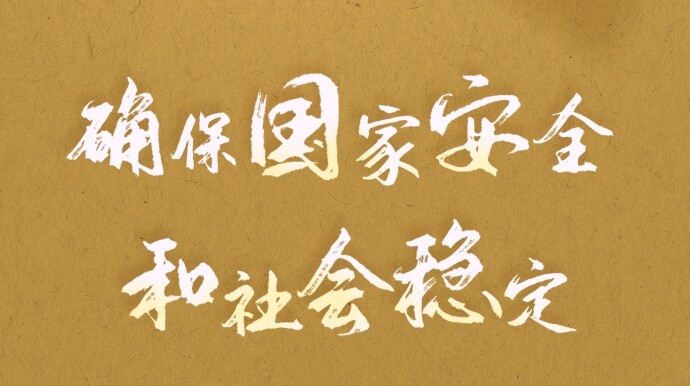 确保国家安全
和社会稳定